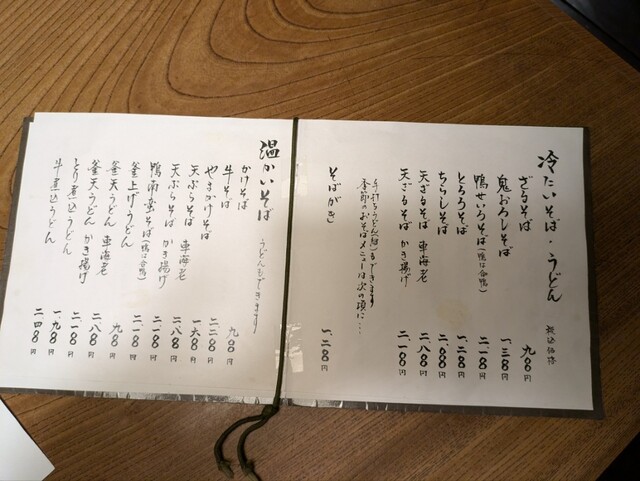 冷たいそば・うどん 税込価格
ざるそば 九〇〇円
鬼おろしそば 一、三八〇円
鴨せいろそば(鴨は合鴨) 二、一八〇円
とろろそば 一、二八〇円
ちらしそば
天ざるそば 車海老 二、八〇〇円
天ざるそば かき揚げ 二、一〇〇円
手打ちうどん(細)もできます
季節のおそばメニューは次の頁に…
そばがき 一、二〇〇円
温かいそば うどんもできます
かけそば 九〇〇円
牛そば 二、二〇〇円
やまかけそば 一、六〇〇円
天ぷらそば 車海老 二、八〇〇円
天ぷらそば かき揚げ 二、一〇〇円
鴨南蛮そば(鴨は合鴨) 二、一〇〇円
釜上げうどん 九〇〇円
釜天うどん 車海老 二、八〇〇円
釜天うどん かき揚げ 二、一〇〇円
とり煮込うどん 一、九〇〇円
牛煮込うどん 二、四〇〇円